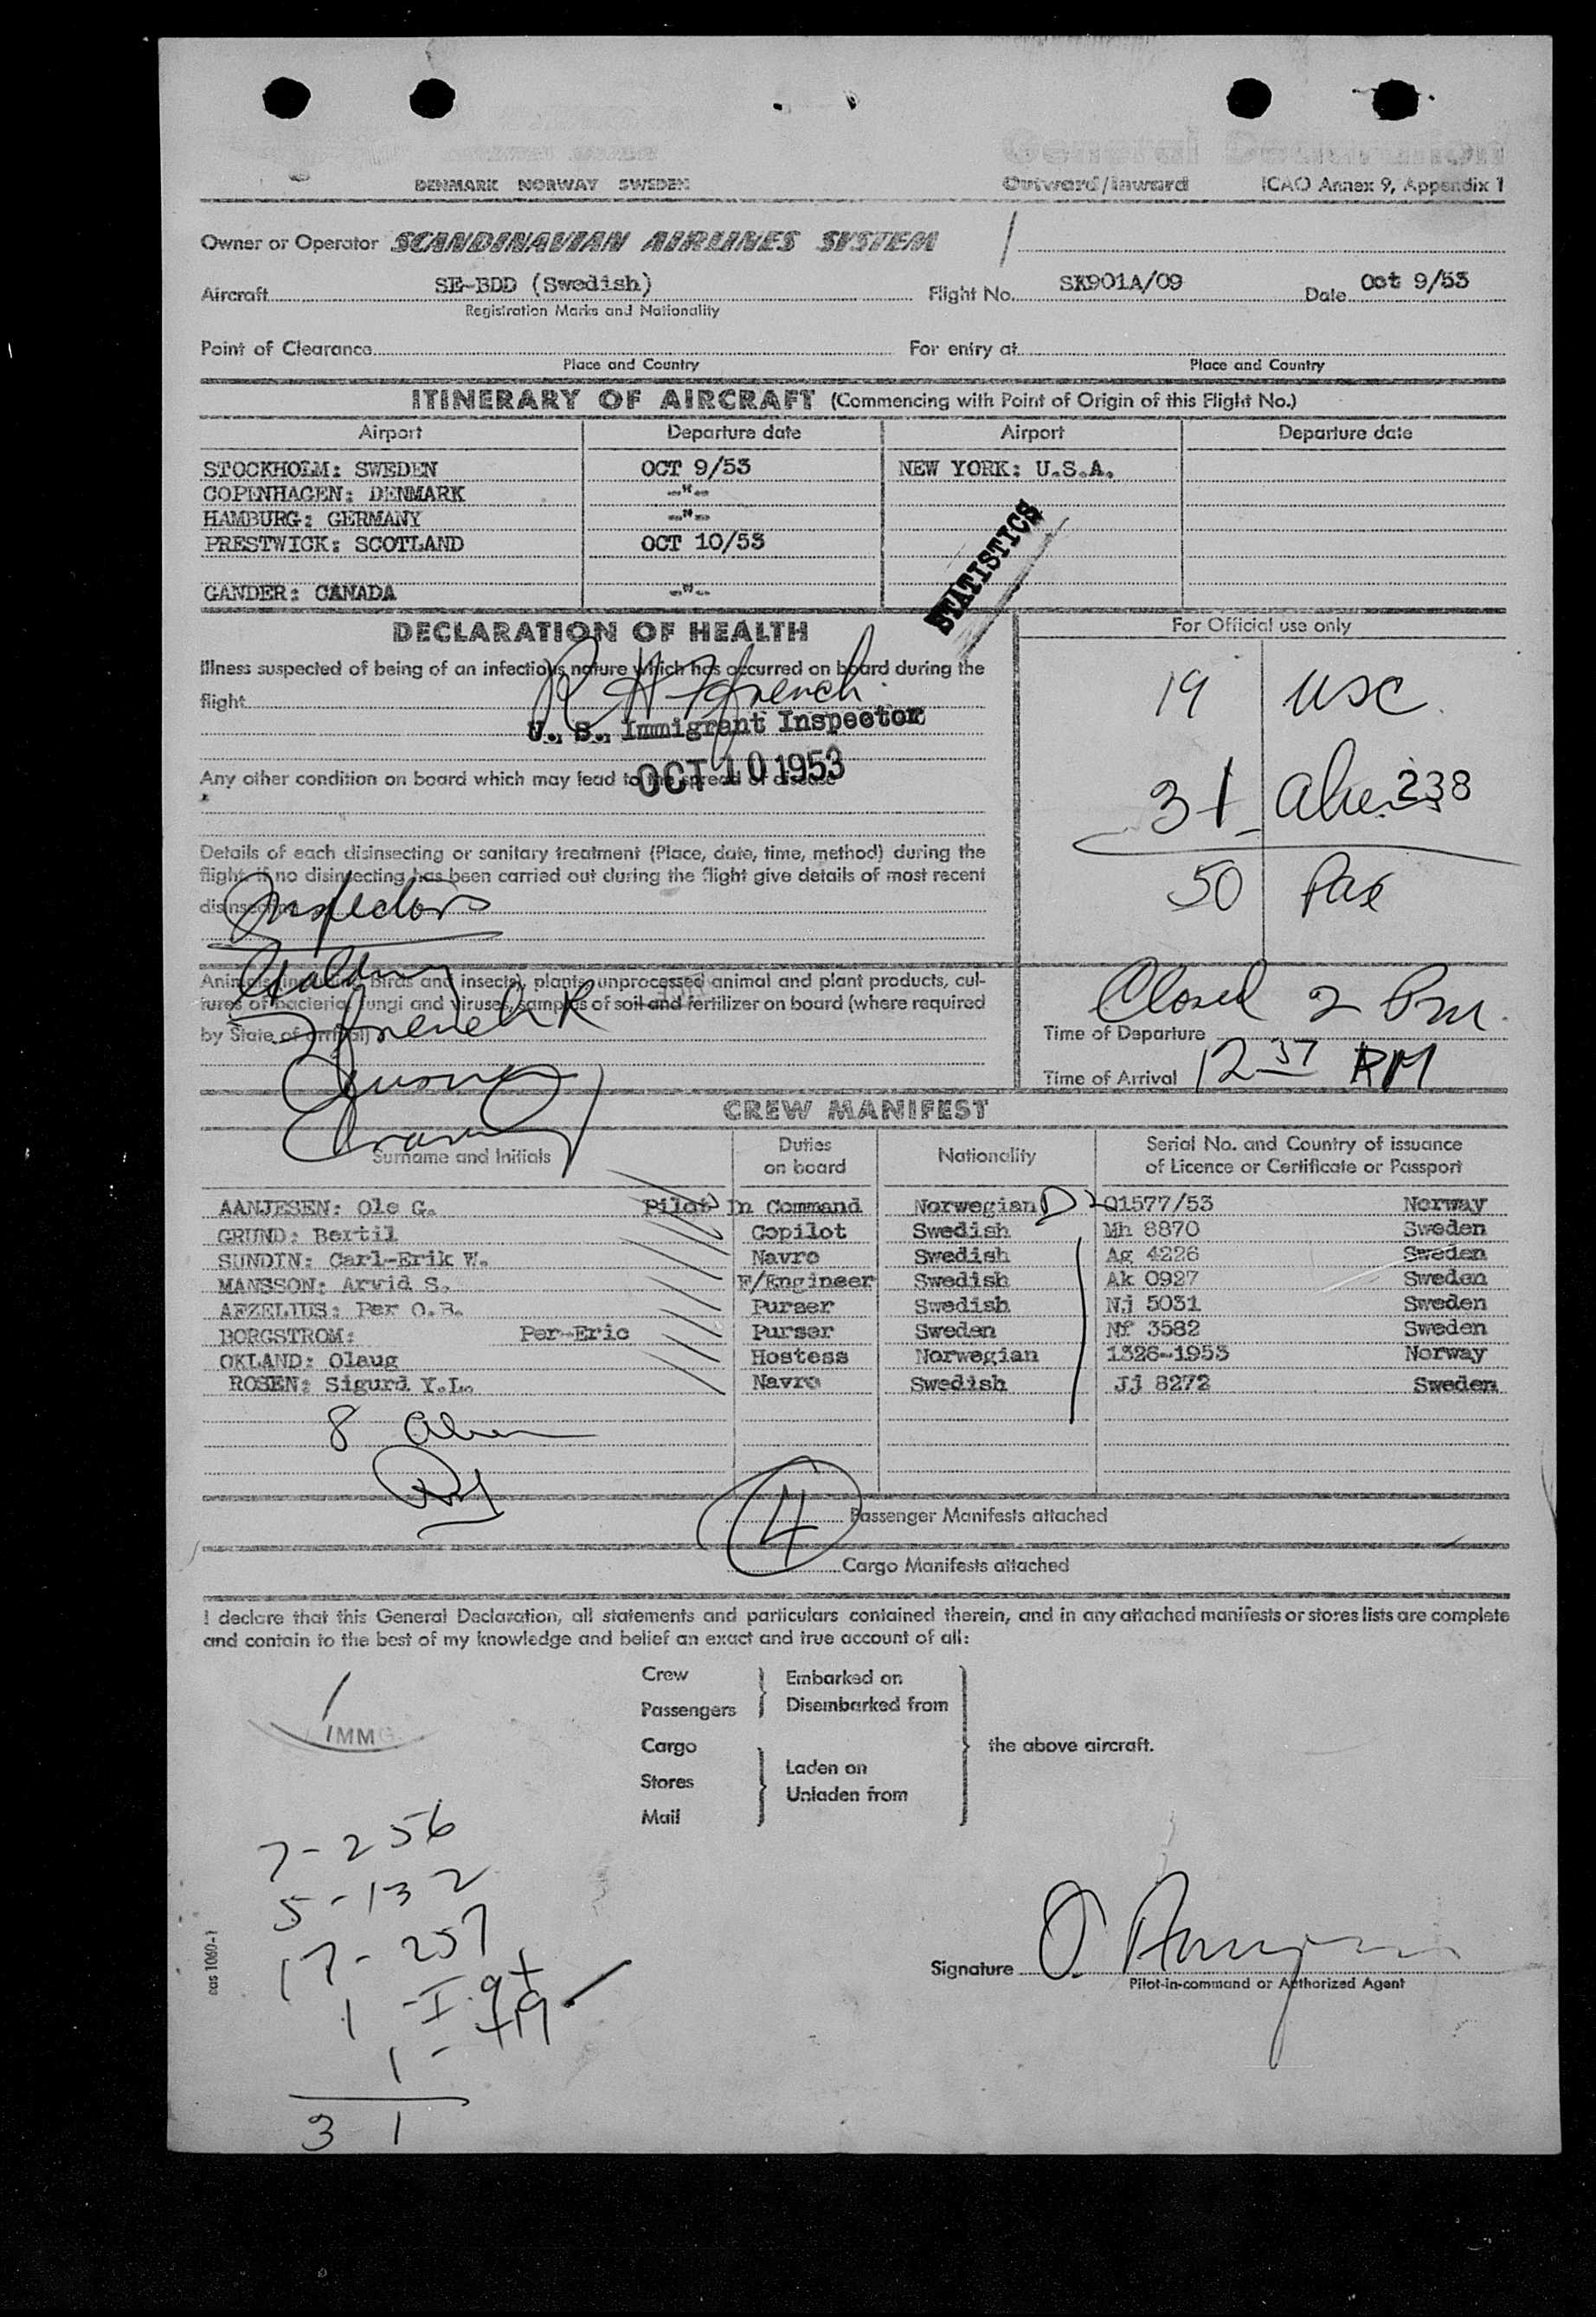 General Declaration
DENMARK NORWAY SWEDEN
Outward/Inward ICAO Annex 9, Appendix 1
Owner or Operator SCANDINAVIAN AIRLINES SYSTEM
Aircraft SE-BDD (Swedish) Flight No. SK901A/09 Date Oct 9/53
Registration Marks and Nationality
Point of Clearance For entry at
Place and Country Place and Country
ITINERARY OF AIRCRAFT (Commencing with Point of Origin of this Flight No.)
Airport Departure date Airport Departure date
STOCKHOLM: SWEDEN OCT 9/53 NEW YORK: U.S.A.
COPENHAGEN: DENMARK -"-
HAMBURG: GERMANY -"-
PRESTWICK: SCOTLAND OCT 10/53
GANDER: CANADA -"-
STATISTICS
DECLARATION OF HEALTH
Illness suspected of being of an infectious nature which has occurred on board during the
flight
R H French
U. S. Immigrant Inspector
OCT 10 1953
Any other condition on board which may lead to the spread of disease
Details of each disinsecting or sanitary treatment (Place, date, time, method) during the
flight. If no disinsecting has been carried out during the flight give details of most recent
disinsecting
Inspectors
Animals (including birds and insects), plants, unprocessed animal and plant products, cul-
tures of bacteria, fungi and viruses, samples of soil and fertilizer on board (where required
by State of arrival)
French R
For Official use only
19 USC
31 alien 238
50 Pax
Closed 2 Pm.
Time of Departure
Time of Arrival 12 37 PM
CREW MANIFEST
Surname and Initials Duties on board Nationality Serial No. and Country of issuance of Licence or Certificate or Passport
AANJESEN: Ole G. Pilot In Command Norwegian D 2 Q1577/53 Norway
GRUND: Bertil Copilot Swedish Mh 8870 Sweden
SUNDIN: Carl-Erik W. Navro Swedish Ag 4226 Sweden
MANSSON: Arvid S. F/Engineer Swedish Ak 0927 Sweden
AFZELIUS: Per O.B. Purser Swedish Nj 5031 Sweden
BORGSTROM: Per-Eric Purser Sweden Nf 3582 Sweden
OKLAND: Olaug Hostess Norwegian 1326-1953 Norway
ROSEN: Sigurd Y.L. Navro Swedish Jj 8272 Sweden
8 alien
4
Passenger Manifests attached
Cargo Manifests attached
I declare that this General Declaration, all statements and particulars contained therein, and in any attached manifests or stores lists are complete
and contain to the best of my knowledge and belief an exact and true account of all:
Crew
Passengers
Embarked on
Disembarked from
Cargo
Stores
Mail
Laden on
Unladen from
the above aircraft.
IMMG
7-256
5-132
17-257
1 -I 94
1 - 419
31
sas 1060-1
Signature
Pilot-in-command or Authorized Agent